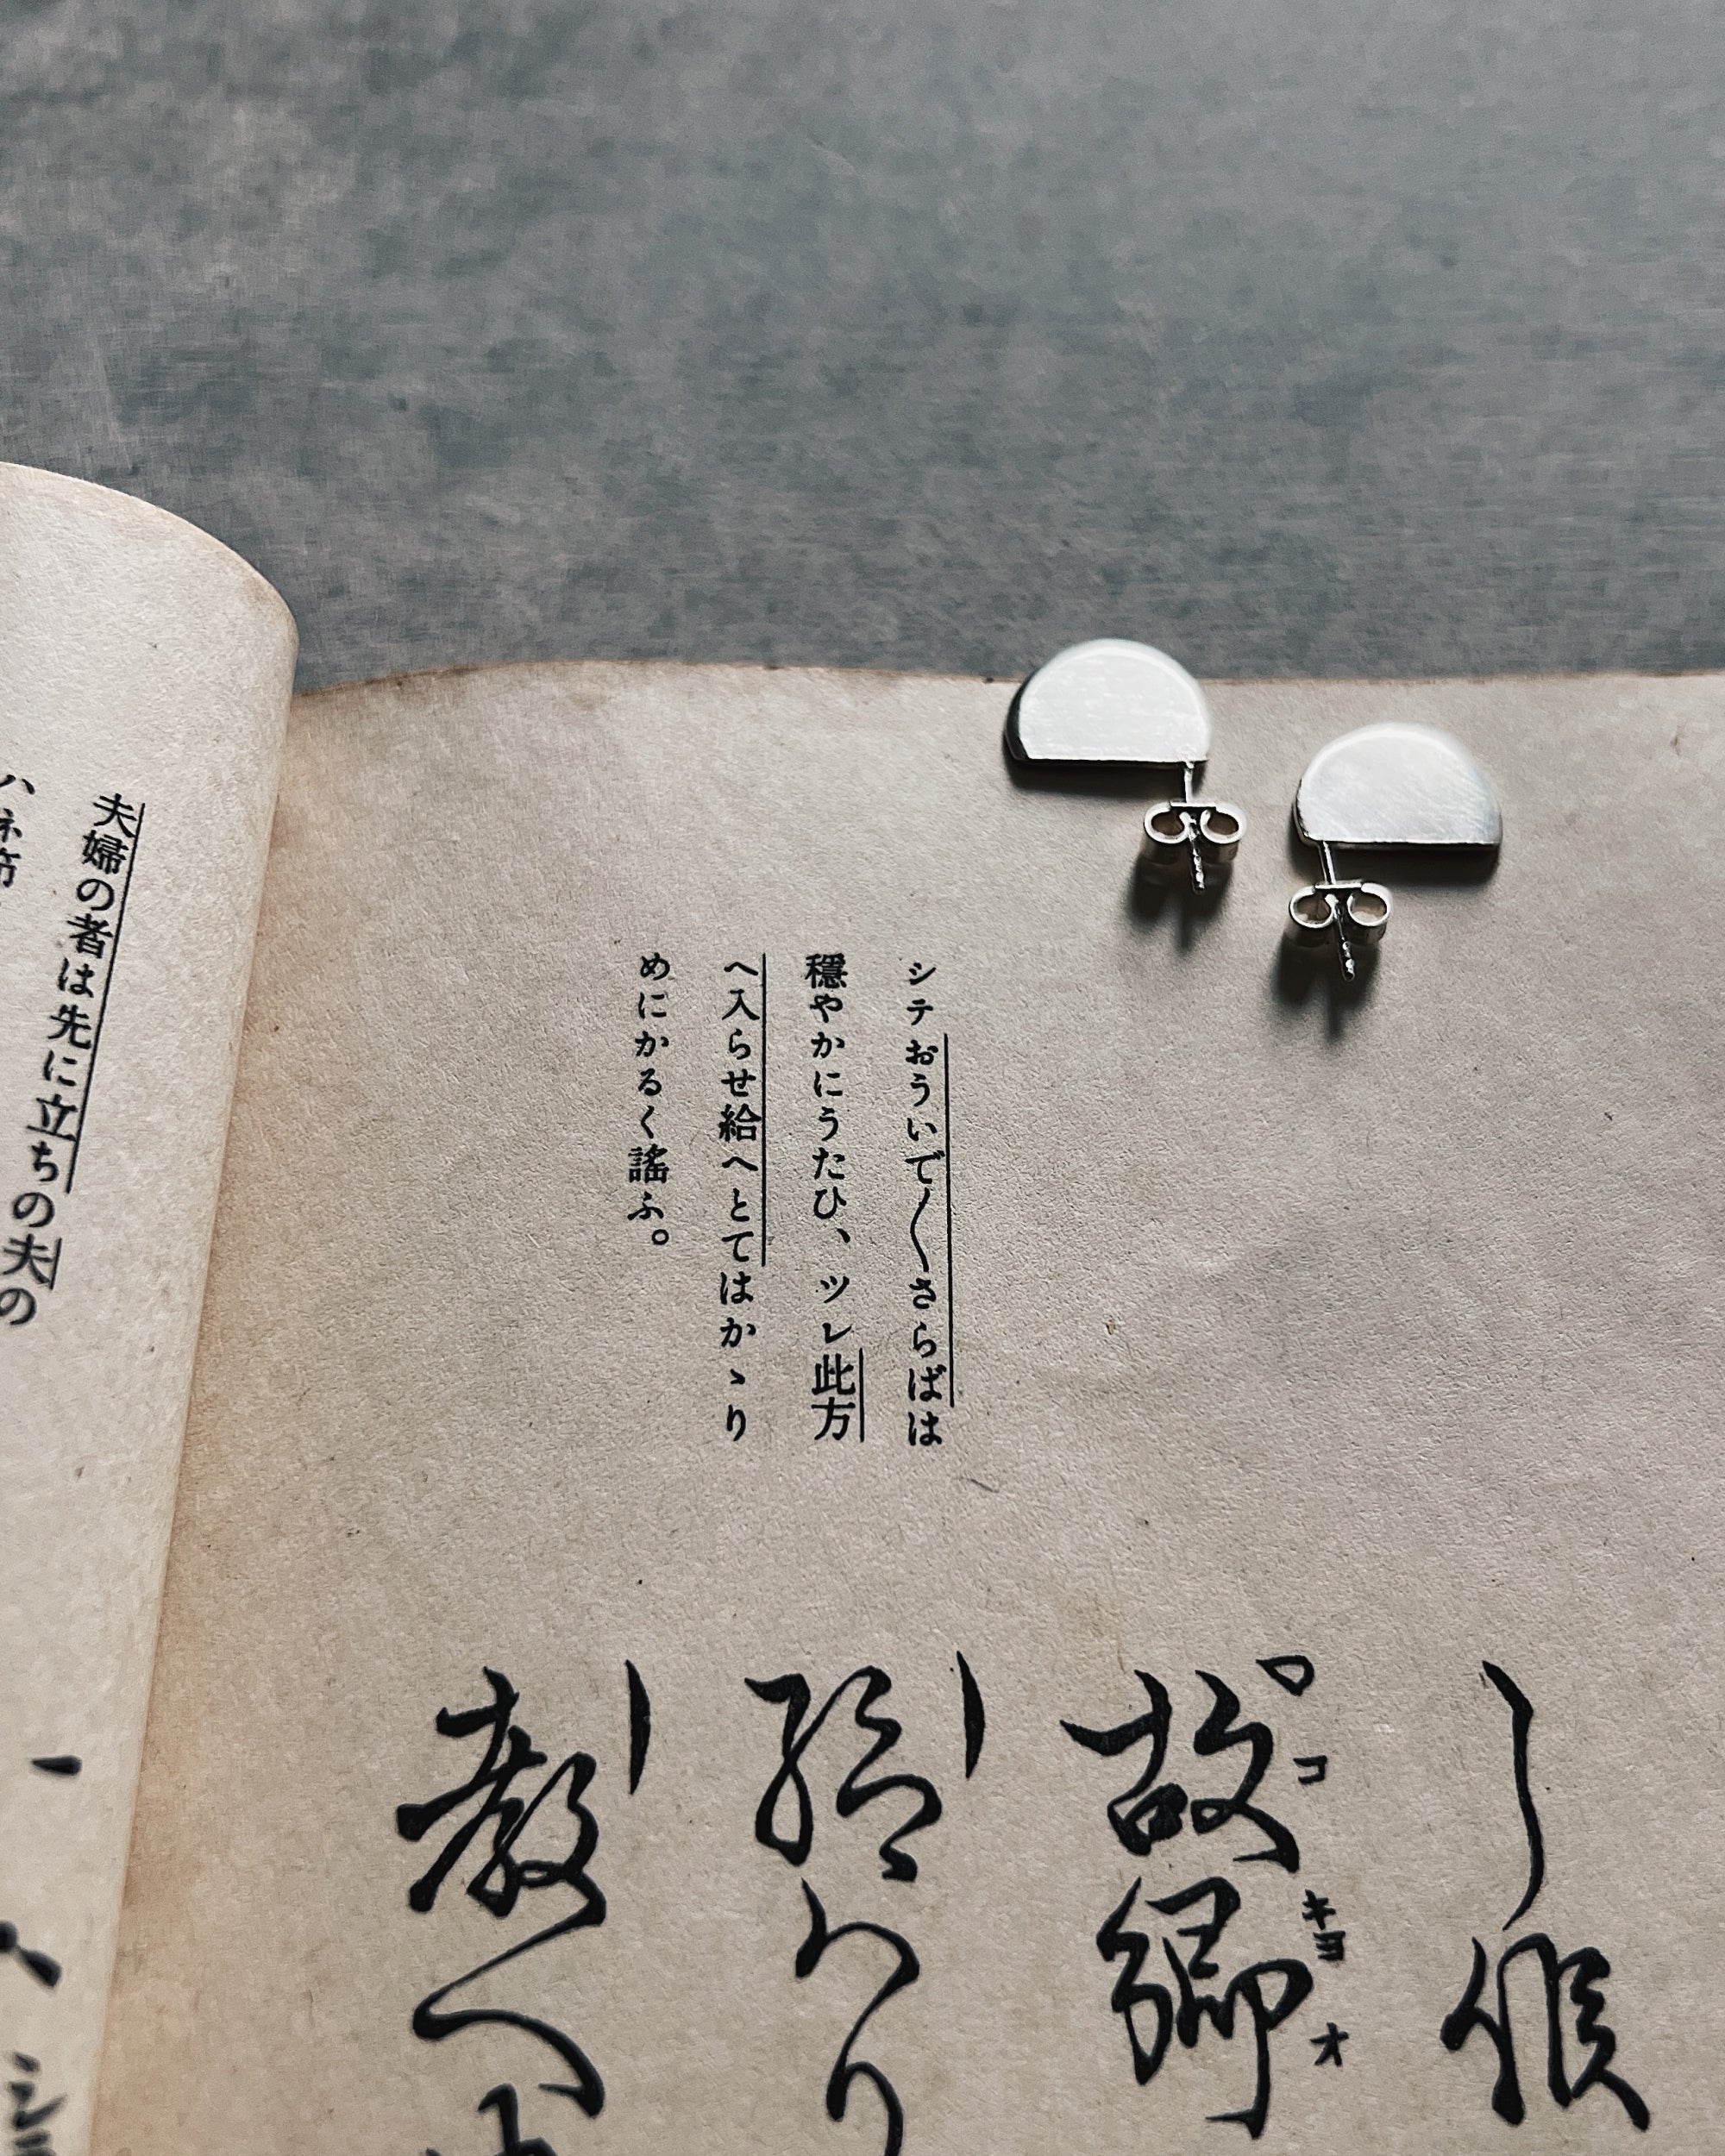 シテおういで〱さらばは
穩やかにうたひ、ツレ此方
へ入らせ給へとてはかゝり
めにかるく謡ふ。
候
故鄕
コ
キヨ
オ
教へ
夫婦の者は先に立ちの夫の
ハネ節